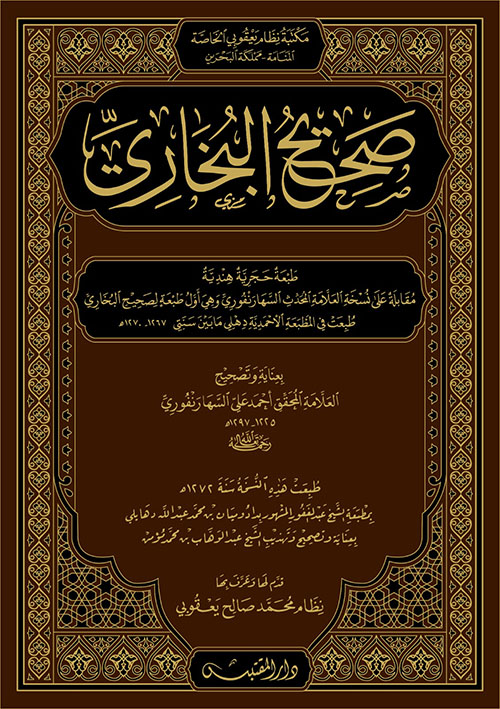 مَكتَبَةُ نِظَام يَعْقُوبي الخَاصَّة
المَنَامَة - مَمْلَكَة البَحْرَيْن
صَحِيحُ البُخَارِيِّ
طَبْعَةٌ حَجَرِيَّةٌ هِنْدِيَّةٌ
مُقَابَلَةٌ عَلَى نُسْخَةِ العَلَّامَةِ المُحَدِّثِ السَّهَارَنْفُورِي وَهِيَ أَوَّلُ طَبْعَةٍ لِصَحِيحِ البُخَارِيِّ
طُبِعَتْ فِي المَطْبَعَةِ الأَحْمَدِيَّةِ دِهْلِي مَا بَيْنَ سَنَتَي ١٢٦٧-١٢٧٠هـ
بِعِنَايَةِ وَتَصْحِيحِ
العَلَّامَةِ المُحَقِّقِ أَحْمَد عَلِيّ السَّهَارَنْفُورِيِّ
١٢٢٥-١٢٩٧هـ
رَحِمَهُ اللَّهُ
طُبِعَتْ هَذِهِ النُّسْخَةُ سَنَةَ ١٢٧٢هـ
بِمَطْبَعَةِ الشَّيْخ عَبد الغَفُور المَشْهُور بِدَادُو مِيَان بْن مُحَمَّد عَبد الله دِهَايلِي
بِعِنَايَةِ وَتَصْحِيحِ وَتَهْذِيبِ الشَّيْخ عَبد الوَهَّاب بْن مُحَمَّد مُؤْمِن
قَدَّمَ لَهَا وَعَرَّفَ بِهَا
نِظَام مُحَمَّد صَالِح يَعْقُوبي
دار المقتبس